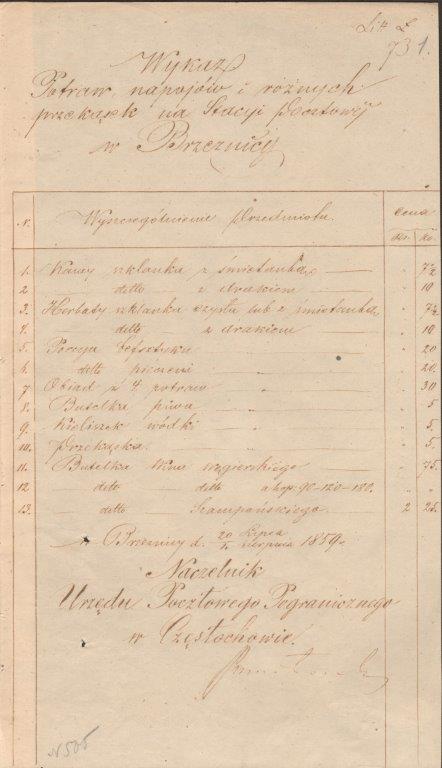 Litt L
73 1.
Wykaz
Potraw, napojów i różnych
przekąsek na Stacyi Pocztowéj
w Brzeźnicy
N. Wyszczególnienie Przedmiotu. Cena
Rs. ko.
1. Kawy szklanka z śmietanką " 7½
2. detto z arakiem " 10
3. Herbaty szklanka czysta lub z śmietanką " 7½
4. detto z arakiem " 10
5. Porcya befsztyku " 20
6. detto pieczeni " 20.
7. Obiad z 4 potraw " 30
8. Butelka piwa " 5
9. Kieliszek wódki " 5
10. Przekąska " 5.
11. Butelka Wina węgierskiego " 75.
12. detto detto a kop. 90-120-180. " "
13. detto Szampańskiego. 2 25.
w Brzeźnicy d. 20 Lipca / 1 Sierpnia 1859 r.
Naczelnik
Urzędu Pocztowego Pogranicznego
w Częstochowie.
N 505